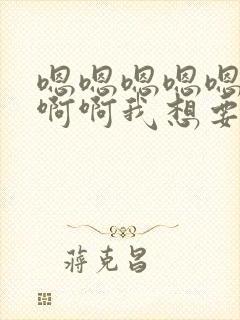 嗯嗯嗯嗯嗯
啊啊我想要
蒋克昌